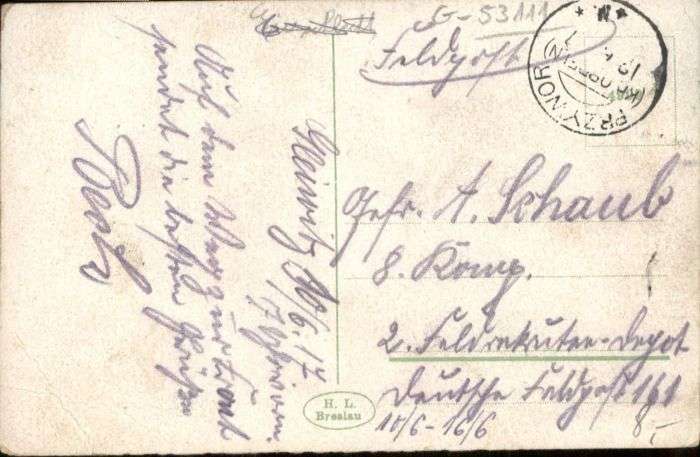 G-53111
Feldpost
PRZYWOR (KR. OPPELN)
Gleiwitz 10/6.17
Auf dem Weg zur Front
sendet die besten Grüße
Gefr. A. Schaub
8. Komp.
2. Feldrekruten-Depot
Deutsche Feldpost 161
10/6-16/6
8,-
H. L.
Breslau